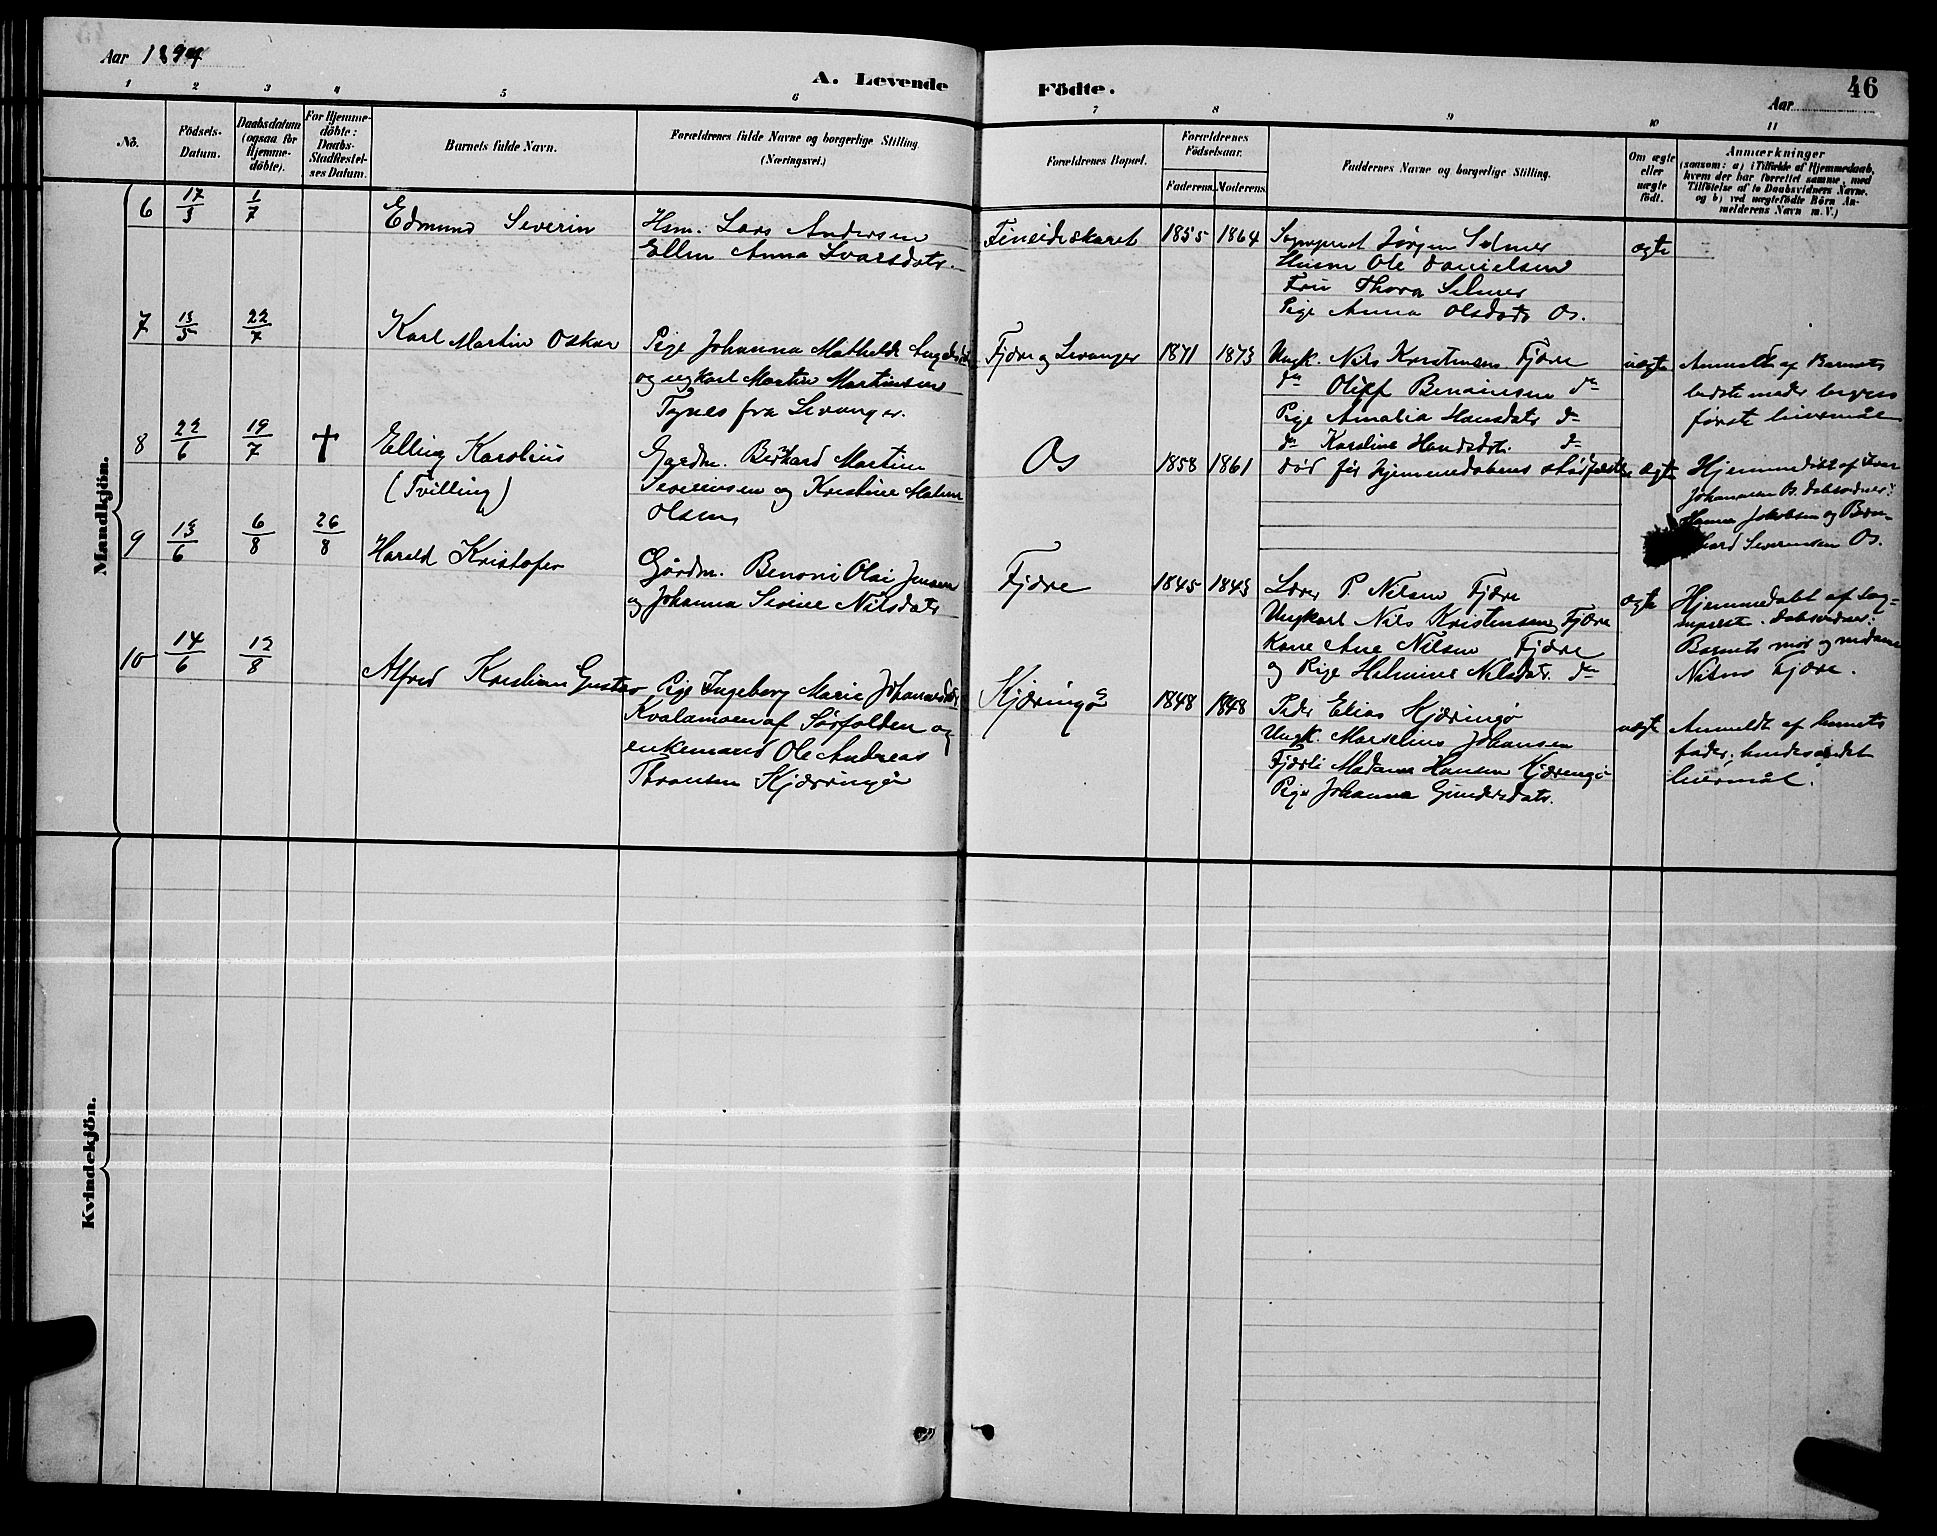 Aar 1894
A. Levende Födte.
46
Aar
1 2 3 4 5 6 7 8 9 10 11
No.
Födsels-Datum.
Daabsdatum (ogsaa for Hjemme-döbte).
For Hjemme-döbte: Daabs-Stadfæstel-ses Datum.
Barnets fulde Navn.
Forældrenes fulde Navne og borgerlige Stilling (Næringsvei.)
Forældrenes Bopæl.
Forældrenes Födselsaar.
Faderens. Moderens.
Faddernes Navne og borgerlige Stilling.
Om ægte eller uægte födt.
Anmærkninger
(saasom: a) i Tilfælde af Hjemmedaab,
hvem der har forrettet samme, med
Tilföielse af to Daabsvidners Navne.
og b) ved uægtefödte Börn An-
melderens Navn m. V.)
Mandkjön.
6 17/3 1/7 Edmund Severin
Hsm. Lars Andersen
Ellen Anna Ivarsdatr.
Fineideskaret 1855 1864
Sogneprest Jörgen Selmer
Husm Ole Danielsen
Fru Thora Selmer
Pige Anna Olsdatr Os.
ægte
7 13/5 22/7 Karl Martin Oskar
Pige Johanna Mathilde
og ugkarl Martin Martinsen
Tynes fra Levanger.
Fjære og Levanger 1871 1873
Ungk. Nils Kristensen Fjære
do Oliff Benonisen do
Pige Amalia Hansdatr do
do Karoline Hansdatr. do
uægte
Anmeldt af Barnets
bedstemoder begges
förste leiermål
8 22/6 19/7 † Elling Karolius
(Tvilling)
Gaardm. Berhard Martin
Severinsen og Kristine
Olsen
Os 1858 1861
död för hjemmedabens stadfæstelse
ægte
Hjemmedöbt af Ivar
Johansen Os. Dabsvidner:
Hanna Jakobsen og Bern-
hard Severinsen Os.
9 13/6 6/8 26/8 Harald Kristofer
Gårdm. Benoni Olai Jensen
og Johanna Sevine Nilsdatr
Fjære 1845 1843
Lærer P. Nilsen Fjære
Ungkarl Nils Kristensen Fjære
Kone Ane Nilsen Fjære
og Pige Helmine Nilsdatr. do
ægte
Hjemmedabt af sog-
neprest. Dabsvidner:
Barnets mor og madame
Nilsen Fjære.
10 14/6 12/8 Alfred Kristian Gustav
Pige Ingeborg Marie Johannesdtr
Kvalamoen af Sørfolden og
enkemand Ole Andreas
Thronsen Kjærringö
Kjæringö 1848 1848
Peder Elias Kjæringö
Ungk. Marselius Johansen
Fjærli Madame Hansen Kjæringö
Pige Johanna Gundersdatr.
uægte
Anmeldt af barnets
fader, hendes andet
leiermål.
Kvindekjön.